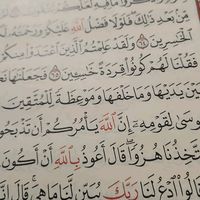 مِنْ بَعْدِ ذَٰلِكَ فَلَوْلَا فَضْلُ اللَّهِ عَلَيْكُمْ وَرَحْمَتُهُ
الْخَاسِرِينَ ٦٤ وَلَقَدْ عَلِمْتُمُ الَّذِينَ اعْتَدَوْا مِنْكُمْ
فَقُلْنَا لَهُمْ كُونُوا قِرَدَةً خَاسِئِينَ ٦٥ فَجَعَلْنَاهَا
بَيْنَ يَدَيْهَا وَمَا خَلْفَهَا وَمَوْعِظَةً لِلْمُتَّقِينَ
مُوسَىٰ لِقَوْمِهِ إِنَّ اللَّهَ يَأْمُرُكُمْ أَنْ تَذْبَحُوا
أَتَتَّخِذُنَا هُزُوًا قَالَ أَعُوذُ بِاللَّهِ أَنْ أَكُونَ
قَالُوا ادْعُ لَنَا رَبَّكَ يُبَيِّنْ لَنَا مَا هِيَ قَالَ إِنَّهُ